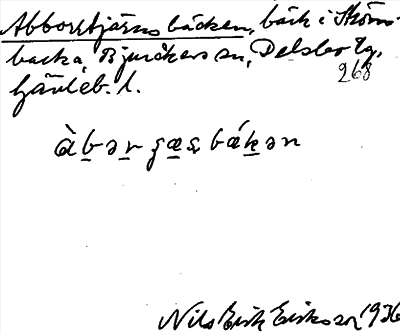 Abborrtjärnsbäcken, bäck i Ströms-
backa, Bjuråkers sn, Delsbo tg,
Gävleb. l.
268
àbərʂæʂbákən
Nils Erik Eriksson 1936